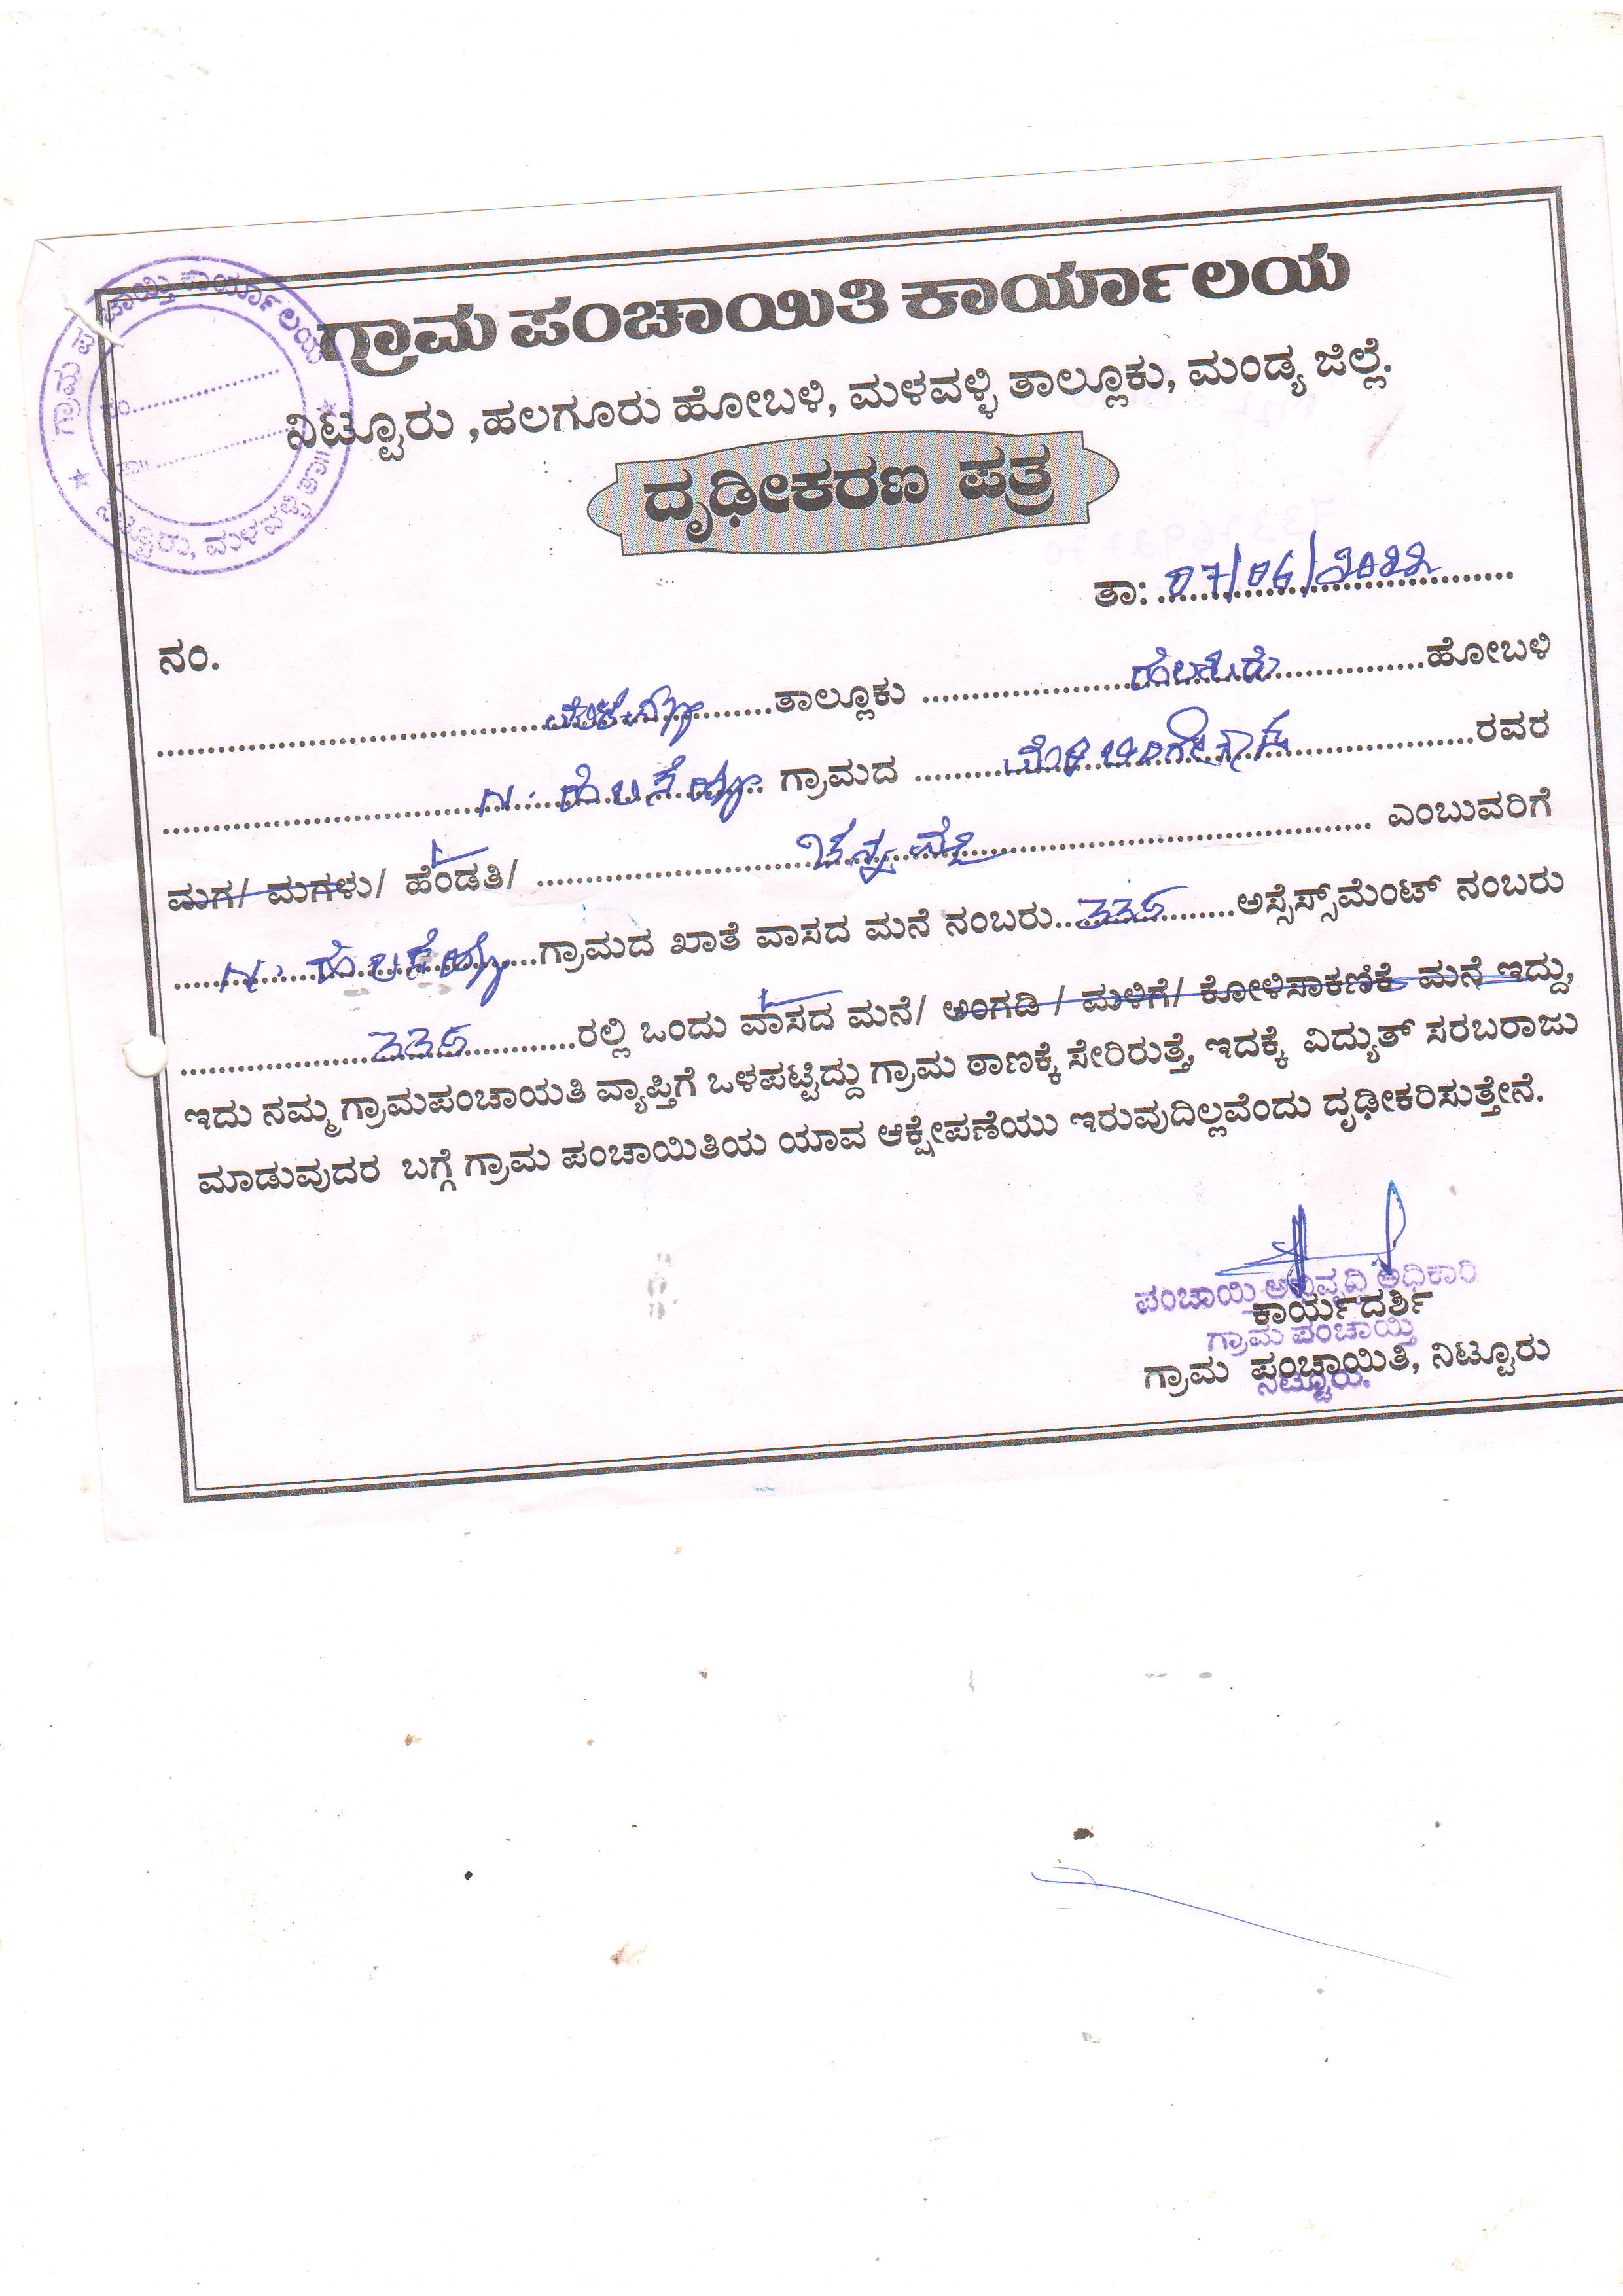 ಗ್ರಾಮ ಪಂಚಾಯಿತಿ ಕಾರ್ಯಾಲಯ
ನಿಟ್ಟೂರು ,ಹಲಗೂರು ಹೋಬಳಿ, ಮಳವಳ್ಳಿ ತಾಲ್ಲೂಕು, ಮಂಡ್ಯ ಜಿಲ್ಲೆ.
ದೃಢೀಕರಣ ಪತ್ರ
ತಾ: 07/06/2022
ನಂ.
ಮಳವಳ್ಳಿ ತಾಲ್ಲೂಕು ಹಲಗೂರು ಹೋಬಳಿ
ಗ್ರಾಮದ ರವರ
ಮಗ/ ಮಗಳು/ ಹೆಂಡತಿ/ ಚನ್ನಮ್ಮ ಎಂಬುವರಿಗೆ
ಗ್ರಾಮದ ಖಾತೆ ವಾಸದ ಮನೆ ನಂಬರು ಅಸ್ಸೆಸ್ಸ್‌ಮೆಂಟ್ ನಂಬರು
ರಲ್ಲಿ ಒಂದು ವಾಸದ ಮನೆ/ ಅಂಗಡಿ / ಮಳಿಗೆ/ ಕೋಳಿಸಾಕಣಿಕೆ ಮನೆ ಇದ್ದು,
ಇದು ನಮ್ಮ ಗ್ರಾಮಪಂಚಾಯತಿ ವ್ಯಾಪ್ತಿಗೆ ಒಳಪಟ್ಟಿದ್ದು ಗ್ರಾಮ ಠಾಣಕ್ಕೆ ಸೇರಿರುತ್ತೆ, ಇದಕ್ಕೆ ವಿದ್ಯುತ್ ಸರಬರಾಜು
ಮಾಡುವುದರ ಬಗ್ಗೆ ಗ್ರಾಮ ಪಂಚಾಯಿತಿಯ ಯಾವ ಆಕ್ಷೇಪಣೆಯು ಇರುವುದಿಲ್ಲವೆಂದು ದೃಢೀಕರಿಸುತ್ತೇನೆ.
ಪಂಚಾಯ್ತಿ ಅಭಿವೃದ್ಧಿ ಅಧಿಕಾರಿ
ಕಾರ್ಯದರ್ಶಿ
ಗ್ರಾಮ ಪಂಚಾಯ್ತಿ
ಗ್ರಾಮ ಪಂಚಾಯಿತಿ, ನಿಟ್ಟೂರು
ನಿಟ್ಟೂರು.